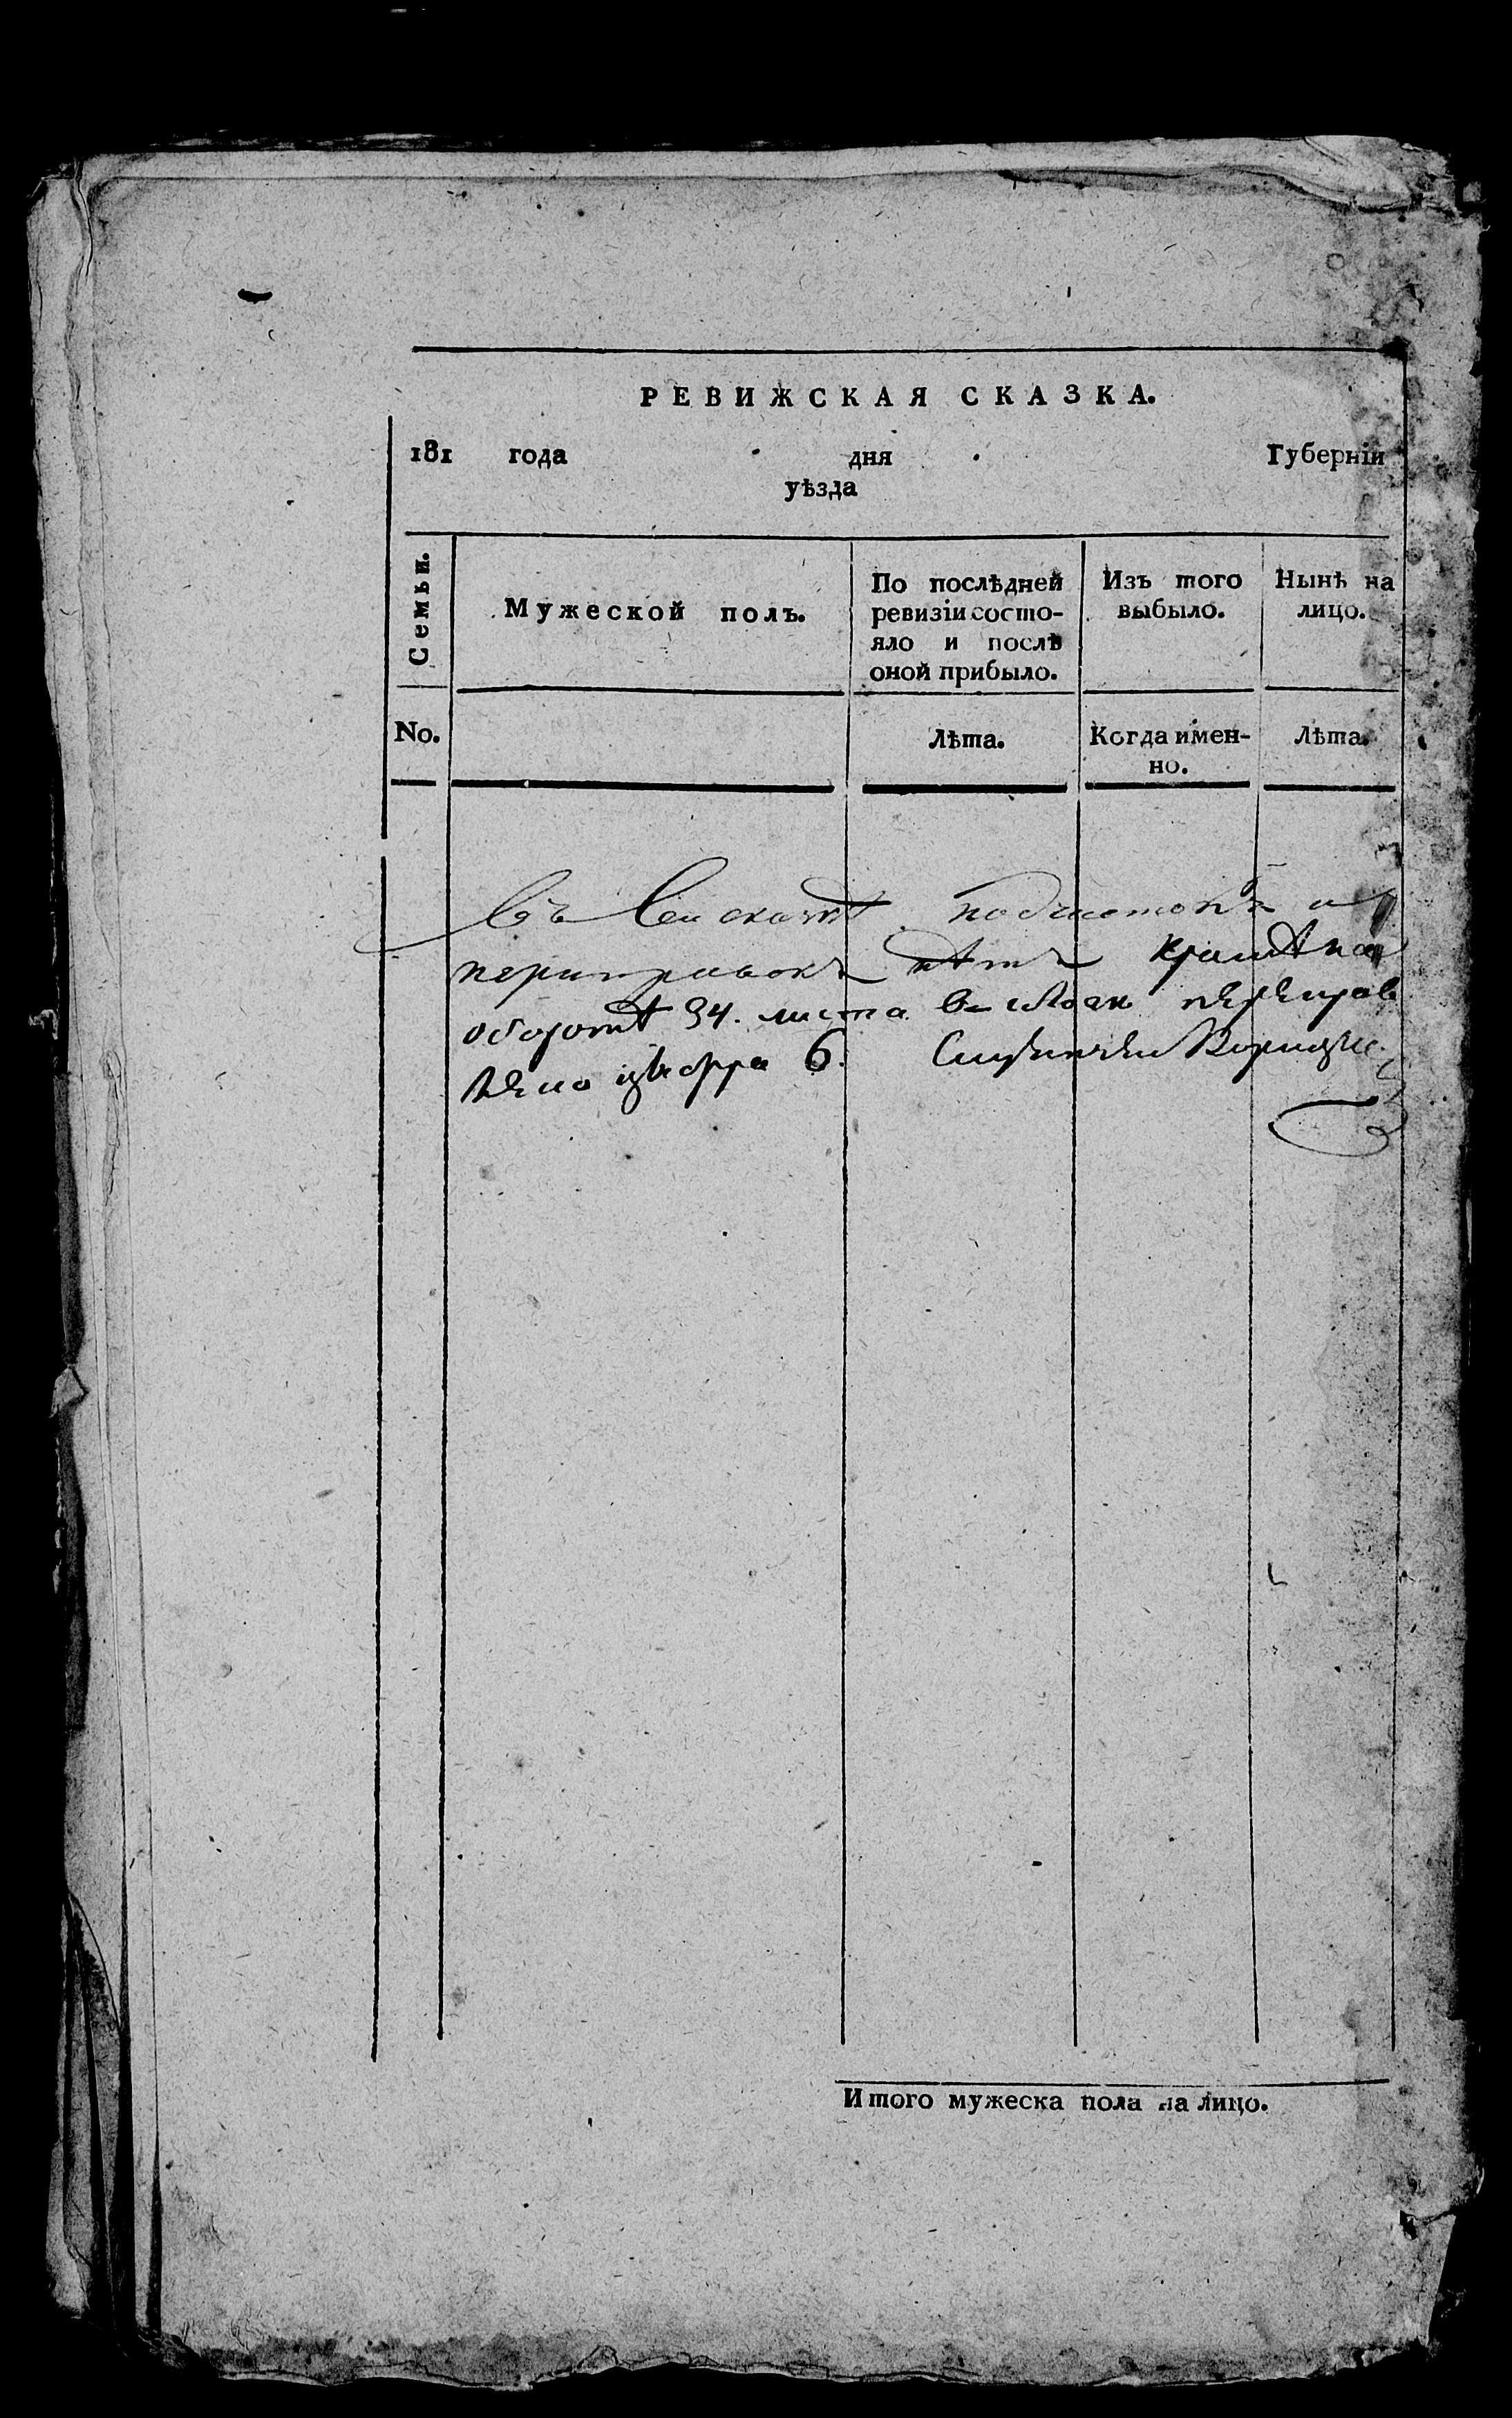 РЕВИЖСКАЯ СКАЗКА.
181 года дня Губерніи
уѣзда
Семьи.
Мужеской полъ.
По послѣдней
ревизіи состо-
яло и послѣ
оной прибыло.
Изъ того
выбыло.
Нынѣ на
лицо.
No.
Лѣта.
Когда имен-
но.
Лѣта.
Въ сей сказкѣ подчистокъ и
переправокъ нѣтъ кромѣ на
оборотѣ 34. листа въ переправ
лено цыфра 6.
Итого мужеска пола на лицо.